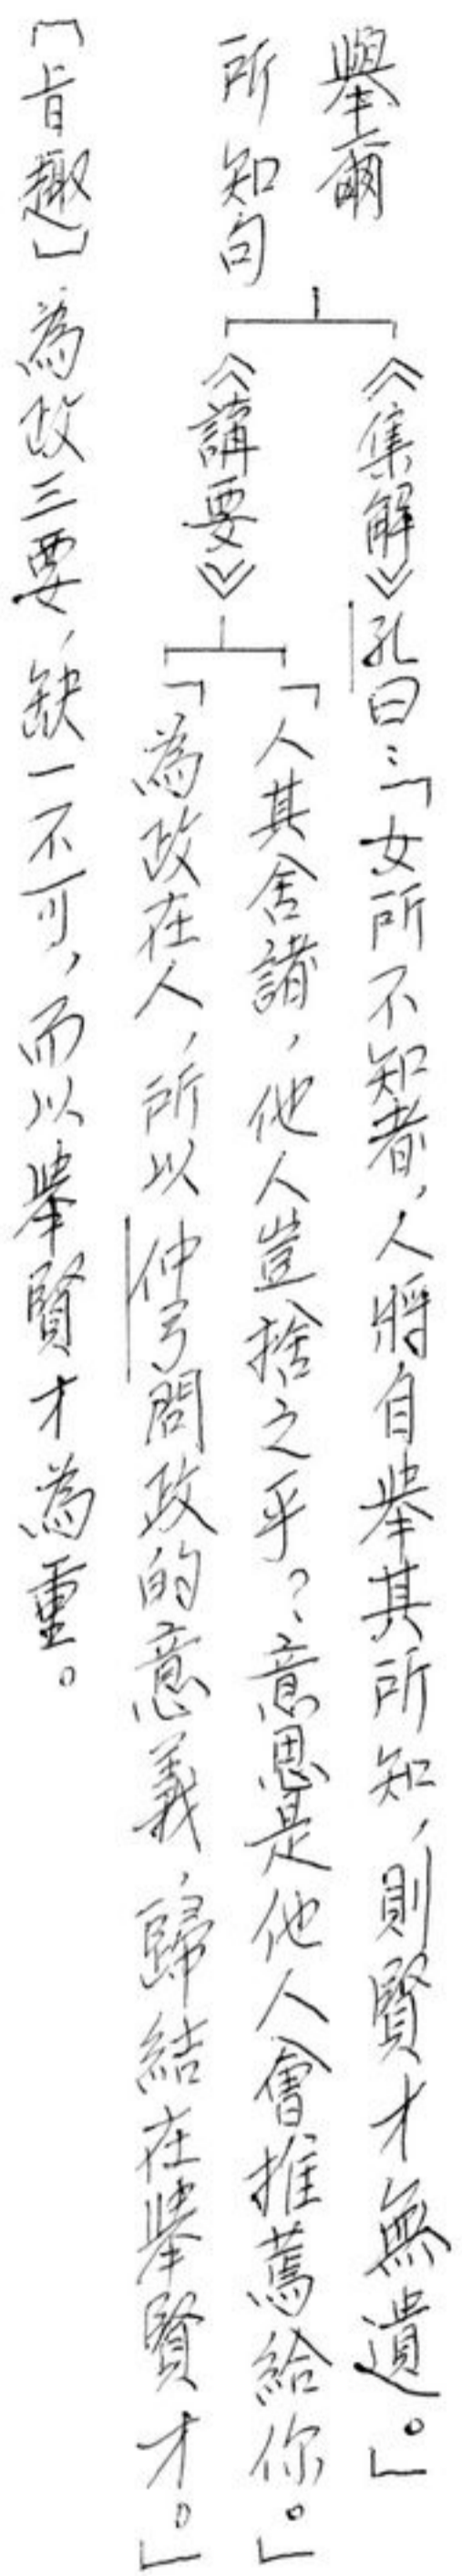 舉爾
所知句
《集解》孔曰：「女所不知者，人將自舉其所知，則賢才無遺。」
《講要》
「人其舍諸，他人豈捨之乎？意思是他人會推薦給你。」
「為政在人，所以仲弓問政的意義，歸結在舉賢才。」
［旨趣］為政三要，缺一不可，而以舉賢才為重。